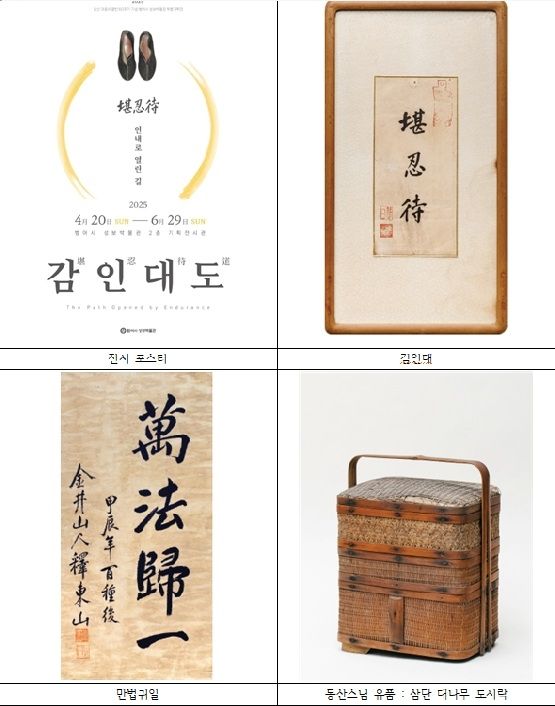 堪忍待
인내로 열린 길
2025
4월 20일 SUN — 6월 29일 SUN
범어사 성보박물관 2층 기획전시관
감인대도
堪 忍 待 道
The Path Opened by Endurance
범어사 성보박물관
전시 포스터
堪忍待
감인대
萬法歸一
甲辰年百種後
金井山人釋東山
만법귀일
동산스님 유품 : 삼단 대나무 도시락